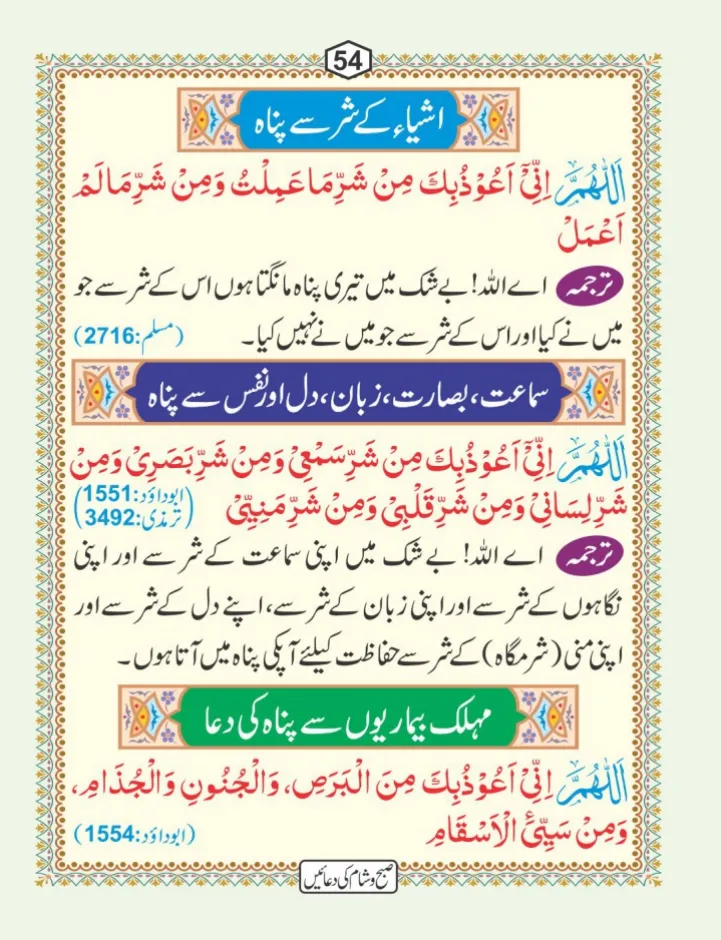 54
اشیاء کے شر سے پناہ
اَللّٰهُمَّ اِنِّیْۤ اَعُوْذُبِكَ مِنْ شَرِّمَا عَمِلْتُ وَمِنْ شَرِّمَالَمْ
اَعْمَلْ
ترجمہ اے اللہ! بے شک میں تیری پناہ مانگتا ہوں اس کے شر سے جو
میں نے کیا اور اس کے شر سے جو میں نے نہیں کیا۔ (مسلم:2716)
سماعت، بصارت، زبان، دل اور نفس سے پناہ
اَللّٰهُمَّ اِنِّیْۤ اَعُوْذُبِكَ مِنْ شَرِّسَمْعِیْ وَمِنْ شَرِّ بَصَرِیْ وَمِنْ
شَرِّ لِسَانِیْ وَمِنْ شَرِّ قَلْبِیْ وَمِنْ شَرِّ مَنِیِّیْ (ابوداؤد:1551
ترمذی:3492)
ترجمہ اے اللہ! بے شک میں اپنی سماعت کے شر سے اور اپنی
نگاہوں کے شر سے اور اپنی زبان کے شر سے، اپنے دل کے شر سے اور
اپنی منی (شرمگاہ) کے شر سے حفاظت کیلئے آپکی پناہ میں آتا ہوں۔
مہلک بیماریوں سے پناہ کی دعا
اَللّٰهُمَّ اِنِّیْۤ اَعُوْذُبِكَ مِنَ الْبَرَصِ، وَالْجُنُونِ وَالْجُذَامِ،
وَمِنْ سَيِّیِٔ الْاَسْقَامِ (ابوداؤد:1554)
صبح و شام کی دعائیں